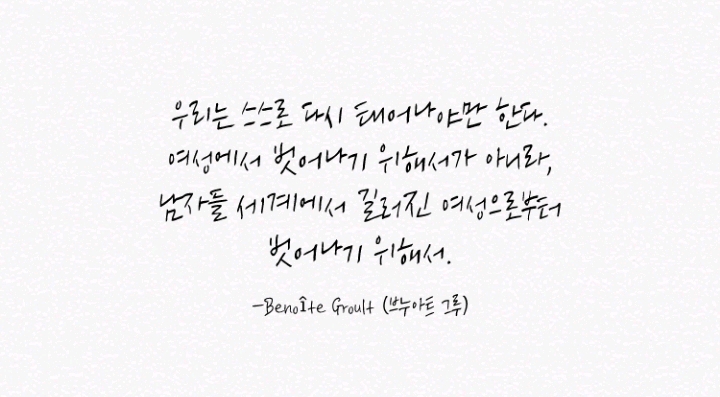 우리는 스스로 다시 태어나야만 한다.
여성에서 벗어나기 위해서가 아니라,
남자들 세계에서 길러진 여성으로부터
벗어나기 위해서.
-Benoîte Groult (브누아트 그루)